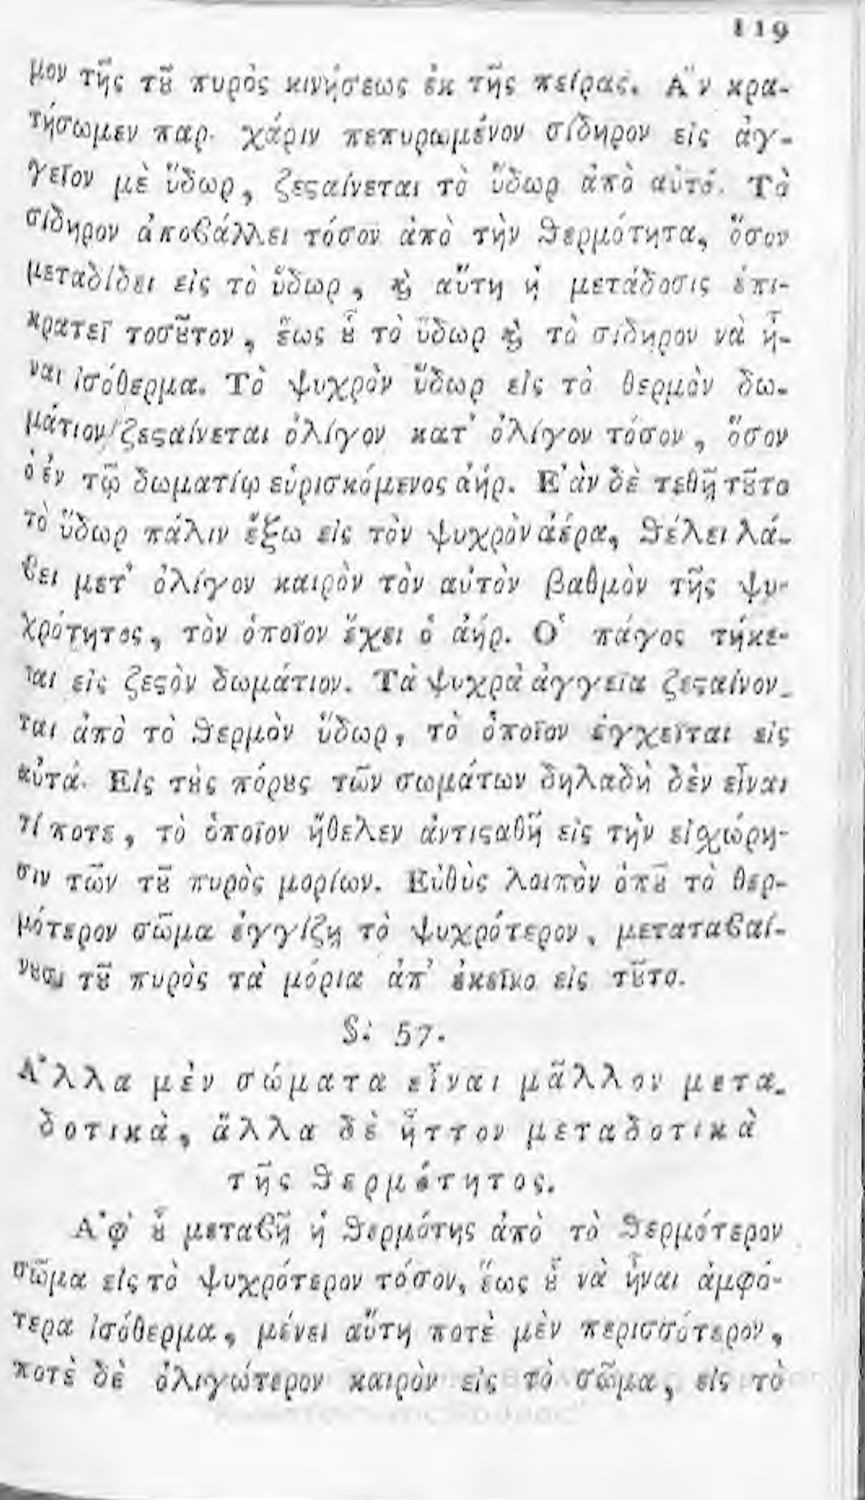 119
μον τῆς τȣ͂ πυρὸς κινήσεως ἐκ τῆς πείρας. Ἂν κρα-
τήσωμεν παρ. χάριν πεπυρωμένον σίδηρον εἰς ἀγ-
γεῖον μὲ ὕδωρ, ζεϛαίνεται τὸ ὕδωρ ἀπὸ αὐτό. Τὸ
σίδηρον ἀποβάλλει τόσον ἀπὸ τὴν θερμότητα, ὅσον
μεταδίδει εἰς τὸ ὕδωρ, ϗ αὕτη ἡ μετάδοσις ἐπι-
κρατεῖ τοσȣ͂τον, ἕως ȣ̔͂ τὸ ὕδωρ ϗ τὸ σίδηρον νὰ ἦ-
ναι ἰσόθερμα. Τὸ ψυχρὸν ὕδωρ εἰς τὸ θερμὸν δω-
μάτιον ζεϛαίνεται ὀλίγον κατ' ὀλίγον τόσον, ὅσον
ὁ ἐν τῷ δωματίῳ εὑρισκόμενος ἀήρ. Ἐὰν δὲ τεθῇ τȣ͂το
τὸ ὕδωρ πάλιν ἔξω εἰς τὸν ψυχρὸν ἀέρα, θέλει λά-
βει μετ' ὀλίγον καιρὸν τὸν αὐτὸν βαθμὸν τῆς ψυ-
χρότητος, τὸν ὁποῖον ἔχει ὁ ἀήρ. Ὁ πάγος τήκε-
ται εἰς ζεϛὸν δωμάτιον. Τὰ ψυχρὰ ἀγγεῖα ζεϛαίνον-
ται ἀπὸ τὸ θερμὸν ὕδωρ, τὸ ὁποῖον ἐγχεῖται εἰς
αὐτά. Εἰς τȣ̀ς πόρȣς τῶν σωμάτων δηλαδὴ δὲν εἶναι
τίποτε, τὸ ὁποῖον ἤθελεν ἀντιϛαθῆ εἰς τὴν εἰσχώρη-
σιν τῶν τȣ͂ πυρὸς μορίων. Εὐθὺς λοιπὸν ὁπȣ͂ τὸ θερ-
μότερον σῶμα ἐγγίζῃ τὸ ψυχρότερον, μεταταβαί-
νȣσι τȣ͂ πυρὸς τὰ μόρια ἀπ' ἐκεῖνο εἰς τȣ͂το.
§. 57.
Ἄλλα μὲν σώματα εἶναι μᾶλλον μετα-
δοτικὰ, ἄλλα δὲ ἧττον μεταδοτικὰ
τῆς θερμότητος.
Ἀφ' ȣ̔͂ μεταβῇ ἡ θερμότης ἀπὸ τὸ θερμότερον
σῶμα εἰς τὸ ψυχρότερον τόσον, ἕως ȣ̔͂ νὰ ἦναι ἀμφό-
τερα ἰσόθερμα, μένει αὕτη ποτὲ μὲν περισσότερον,
ποτὲ δὲ ὀλιγώτερον καιρὸν εἰς τὸ σῶμα, εἰς τὸ